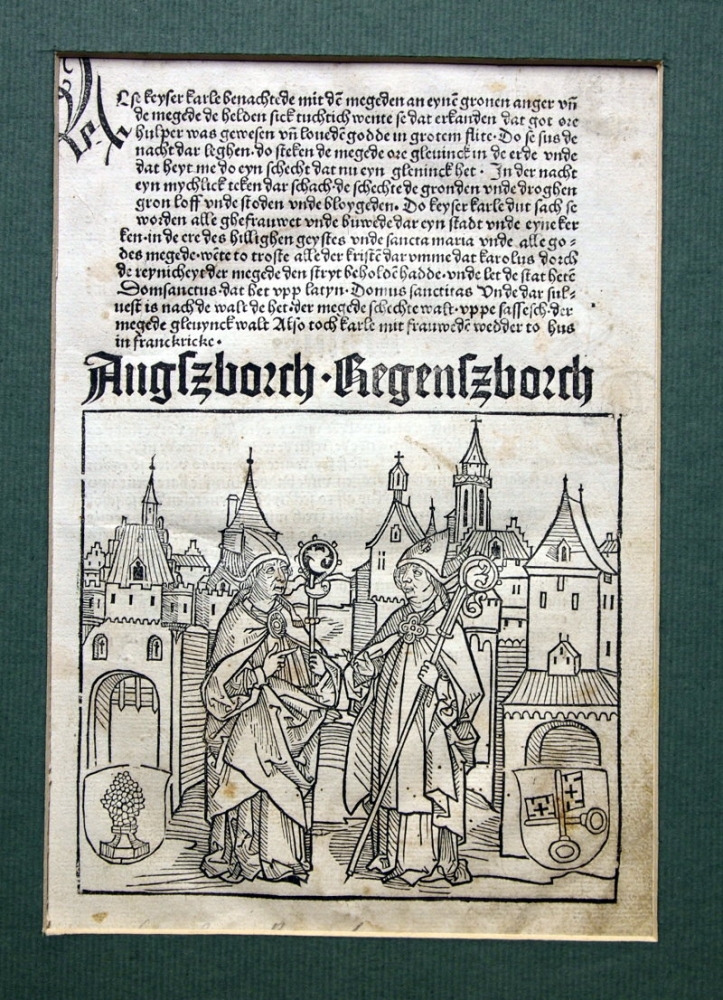 Alse keyser karle benachtede mit dē megeden an eynē gronen anger vn̄
de megede de helden sick tuchtich wente se dat erkanden dat got ore
hulper was gewesen vn̄ louedē godde in grotem flite· Do se sus de
nacht dar leghen· do steken de megede ore gleuinck in de erde vnde
dat heyt me do eyn schecht dat nu eyn gleninck het · In der nacht
eyn mychlick teken dar schach· de schechte de gronden vnde droghen
gron loff vnde stoden vnde bloygeden· Do keyser karle dut sach se
worden alle ghefrauwet vnde buwede dar eyn stadt vnde eyne ker
ken· in de ere des hillighen geystes vnde sancta maria vnde alle go⸗
des megede· wēte to troste alle der kristē dar vmme dat karolus dorch
de reynicheyt der megede den stryt beholdē hadde· vnde let de stat hetē
Domsanctus· dat het vpp latyn· Domus sanctitas Vnde dar sul⸗
uest is nach de walt de het· der megede schechte walt· vppe sassesch· der
megede gleuynck walt Also toch karle mit frauwedē wedder to hus
in franckricke·
Augszborch · Regenszborch